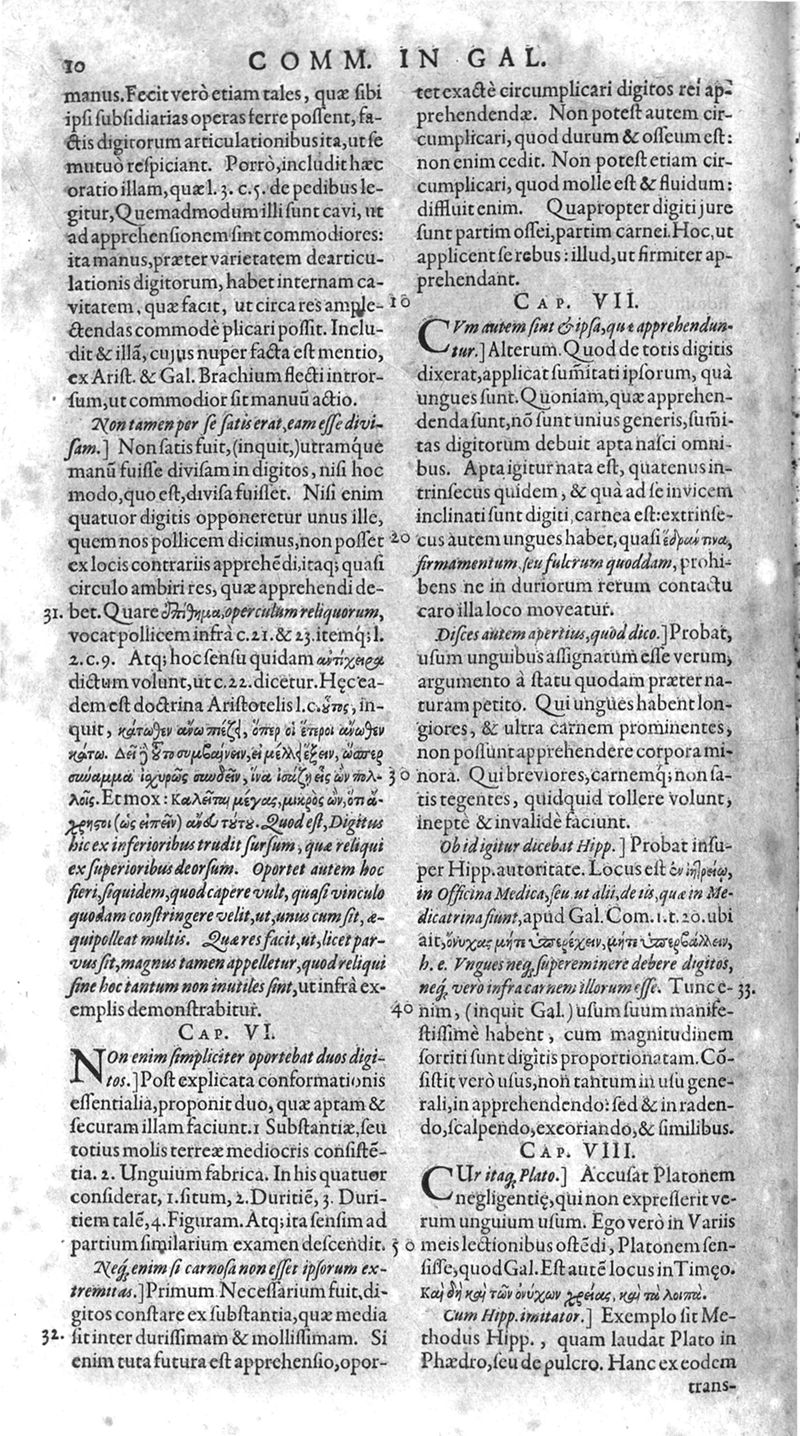 10
COMM. IN GAL.
manus. Fecit verò etiam tales, quæ sibi
ipsi subsidiarias operas ferre possent, fa-
ctis digitorum articulationibus ita, ut se
mutuò respiciant. Porrò, includit hæc
oratio illam, quæ l. 3. c. 5. de pedibus le-
gitur, Quemadmodum illi sunt cavi, ut
ad apprehensionem sint commodiores:
ita manus, præter varietatem dearticu-
lationis digitorum, habet internam ca-
vitatem, quæ facit, ut circa res ample-
ctendas commodè plicari possit. Inclu-
dit & illã, cujus nuper facta est mentio,
ex Arist. & Gal. Brachium flecti intror-
sum, ut commodior sit manuũ actio.
Non tamen per se satis erat, eam esse divi-
sam.] Non satis fuit, (inquit,) utramq́ue
manũ fuisse divisam in digitos, nisi hoc
modo, quo est, divisa fuisset. Nisi enim
quatuor digitis opponeretur unus ille,
quem nos pollicem dicimus, non posset
ex locis contrariis apprehẽdi, itaq; quasi
circulo ambiri res, quæ apprehendi de-
31. bet. Quare ἐπίθημα, operculum reliquorum,
vocat pollicem infrà c. 21. & 23. itemq; l.
2. c. 9. Atq; hoc sensu quidam ἀντίχειρα
dictum volunt, ut c. 22. dicetur. Hęc ea-
dem est doctrina Aristotelis l. c. οὗτος, in-
quit, κάτωθεν ἄνω πιέζει, ὅπερ οἱ ἕτεροι ἄνωθεν
κάτω. Δεῖ ἢ οὕτο συμβαίνειν, εἰ μέλλει ἕξειν, ὥσπερ
σύναμμα ἰσχυρῶς συνδεῖν, ἵνα ἰσάζη εἷς ὢν πολ-
λοῖς. Et mox: Καλεῖται μέγας, μικρὸς ὢν, ὅτι ἄ-
χρηστοι (ὡς εἰπεῖν) ἄνευ τούτου. Quod est, Digitus
hic ex inferioribus trudit sursum, quæ reliqui
ex superioribus deorsum. Oportet autem hoc
fieri, siquidem, quod capere vult, quasi vinculo
quodam constringere velit, ut, unus cum sit, æ-
quipolleat multis. Quæ res facit, ut, licet par-
vus sit, magnus tamen appelletur, quod reliqui
sine hoc tantum non inutiles sint, ut infrà ex-
emplis demonstrabitur.
CAP. VI.
NOn enim simpliciter oportebat duos digi-
tos.] Post explicata conformationis
essentialia, proponit duo, quæ aptam &
securam illam faciunt. 1 Substantiæ, seu
totius molis terreæ mediocris consistẽ-
tia. 2. Unguium fabrica. In his quatuor
considerat, 1. situm, 2. Duritiẽ, 3. Duri-
tiem talẽ, 4. Figuram. Atq; ita sensim ad
partium similarium examen descendit.
Neq; enim si carnosa non esset ipsorum ex-
tremitas.] Primum. Necessarium fuit, di-
gitos constare ex substantia, quæ media
32. sit inter durissimam & mollissimam. Si
enim tuta futura est apprehensio, opor-
tet exactè circumplicari digitos rei ap-
prehendendæ. Non potest autem cir-
cumplicari, quod durum & osseum est:
non enim cedit. Non potest etiam cir-
cumplicari, quod molle est & fluidum:
diffluit enim. Quapropter digiti jure
sunt partim ossei, partim carnei. Hoc, ut
applicent se rebus: illud, ut firmiter ap-
prehendant.
10 CAP. VII.
CVm autem sint & ipsa, quæ apprehendun-
tur.] Alterum. Quod de totis digitis
dixerat, applicat sum̃itati ipsorum, quà
ungues sunt. Quoniam, quæ apprehen-
denda sunt, nõ sunt unius generis, sum̃i-
tas digitorum debuit apta nasci omni-
bus. Apta igitur nata est, quatenus in-
trinsecus quidem, & quà ad se invicem
inclinati sunt digiti, carnea est: extrinse-
20 cus autem ungues habet, quasi ἕδραν τινα,
firmamentum, seu fulcrum quoddam, prohi-
bens ne in duriorum rerum contactu
caro illa loco moveatur.
Disces autem apertius, quod dico.] Probat,
usum unguibus assignatum esse verum,
argumento à statu quodam præter na-
turam petito. Qui ungues habent lon-
giores, & ultra carnem prominentes,
non possunt apprehendere corpora mi-
30 nora. Qui breviores, carnemq; non sa-
tis tegentes, quidquid tollere volunt,
ineptè & invalidè faciunt.
Ob id igitur dicebat Hipp.] Probat insu-
per Hipp. autoritate. Locus est ἐν ἰητρείῳ,
in Officina Medica, seu ut alii, de iis, quæ in Me-
dicatrina fiunt, apud Gal. Com. 1. t. 20. ubi
ait, ὄνυχας μήτε ὑπερέχειν, μήτε ὑπερβάλλειν,
h. e. Ungues neq; supereminere debere digitos,
neq; vero infra carnem illorum esse. Tunc e- 33.
40 nim, (inquit Gal.) usum suum manife-
stissimè habent, cum magnitudinem
sortiti sunt digitis proportionatam. Cõ-
sistit verò usus, non tantum in usu gene-
rali, in apprehendendo: sed & in raden-
do, scalpendo, excoriando, & similibus.
CAP. VIII.
CUr itaq; Plato.] Accusat Platonem
negligentię, qui non expresserit ve-
rum unguium usum. Ego verò in Variis
50 meis lectionibus ostẽdi, Platonem sen-
sisse, quod Gal. Est autẽ locus in Timęo.
Καὶ δὴ καὶ τῶν ὀνύχων χρείας, καὶ τὰ λοιπά.
Cum Hipp. imitator.] Exemplo sit Me-
thodus Hipp., quam laudat Plato in
Phædro, seu de pulcro. Hanc ex eodem
trans-